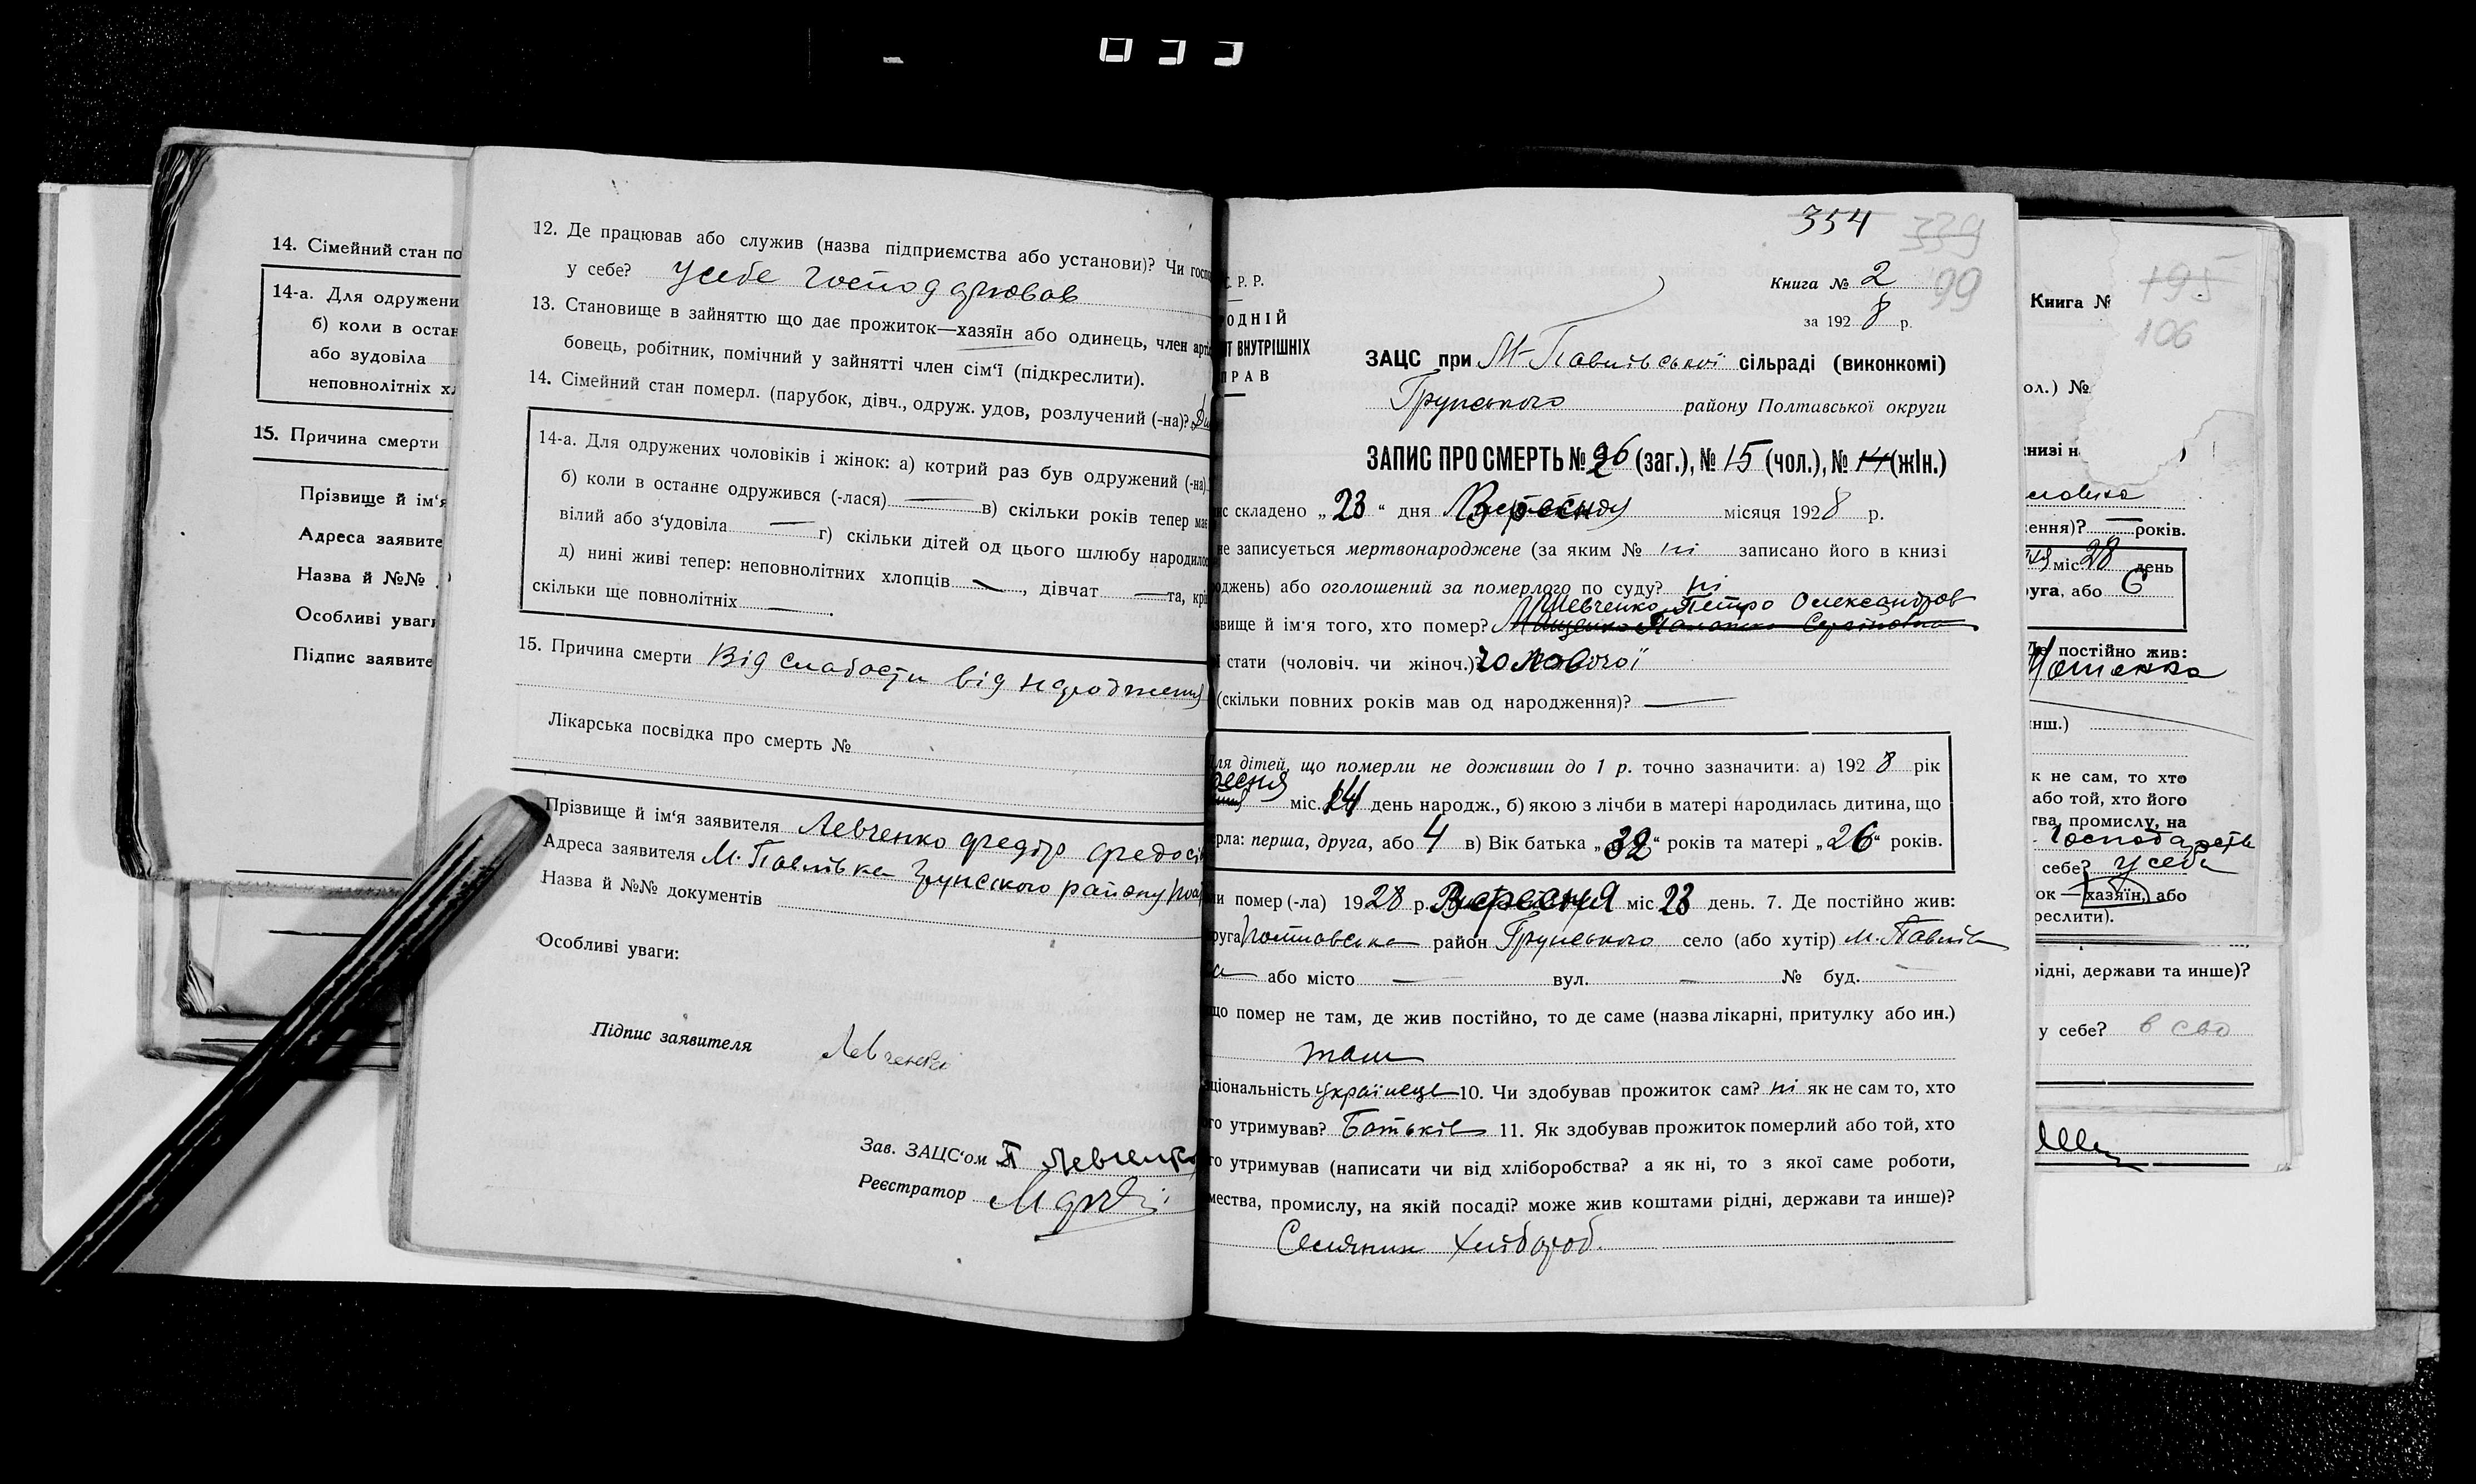 033
14. Сімейний стан по
14-а. Для одружени
б) коли в остан
або зудовіла
неповнолітніх хл
15. Причина смерти
Прізвище й ім'я
Адреса заявите
Назва й №№
Особливі уваги
Підпис заявите
12. Де працював або служив (назва підприємства або установи)? Чи госп
у себе? У себе господарював
13. Становище в зайняттю що дає прожиток—хазяїн або одинець, член арті
бовець, робітник, помічний у зайнятті член сім'ї (підкреслити).
14. Сімейний стан померл. (парубок, дівч., одруж. удов, розлучений (-на)?
14-а. Для одружених чоловіків і жінок: а) котрий раз був одружений (-на)
б) коли в останнє одружився (-лася) — в) скільки років тепер має
вілий або з'удовіла — г) скільки дітей од цього шлюбу народилос
д) нині живі тепер: неповнолітних хлопців —, дівчат — та, кр
скільки ще повнолітніх —.
15. Причина смерти Від слабости від народження
Лікарська посвідка про смерть №
Прізвище й ім'я заявителя Левченко Федір Федосі
Адреса заявителя М. Павлівка Грунського району Пол
Назва й №№ документів
Особливі уваги:
Підпис заявителя Левченко
Зав. ЗАЦС'ом П Левченко
Реєстратор
354 339
С. Р. Р.
Книга № 2 99
ОДНІЙ
за 1928 р.
Т ВНУТРІШНІХ
ПРАВ
ЗАЦС при М-Павлівської сільраді (виконкомі)
Грунського району Полтавської округи
ЗАПИС ПРО СМЕРТЬ № 26 (заг.), № 15 (чол.), № 14 (жін.)
ис складено „23“ дня Вересня місяця 1928 р.
не записується мертвонароджене (за яким № ні записано його в книзі
роджень) або оголошений за померлого по суду? ні
Шевченко Петро Олександров
звище й ім'я того, хто помер?
стати (чоловіч. чи жіноч.)? Чоловічої
(скільки повних років мав од народження)? —
Для дітей, що померли не доживши до 1 р. точно зазначити: а) 1928 рік
ресня міс. 14 день народж., б) якою з лічби в матері народилась дитина, що
ерла: перша, друга, або 4 в) Вік батька „32“ років та матері „26“ років.
ли помер (-ла) 1928 р. Вересня міс 23 день. 7. Де постійно жив:
руга Полтавська район Грунського село (або хутір) М. Павлів
ка або місто — вул. — № буд. —
що помер не там, де жив постійно, то де саме (назва лікарні, притулку або ин.)
там
ціональність українець 10. Чи здобував прожиток сам? ні як не сам то, хто
го утримував? Батьків 11. Як здобував прожиток померлий або той, хто
го утримував (написати чи від хліборобства? а як ні, то з якої саме роботи,
мества, промислу, на якій посаді? може жив коштами рідні, держави та инше)?
Селянин Хлібороб.
Книга №
195
106
ол.) №
книзі н
ення)? — років.
міс 28 день
руга, або 6
Де постійно жив:
инш.)
к не сам, то хто
або той, хто його
тва, промислу, на
Господарств
себе? у себе
ок — хазяїн, або
реслити).
рідні, держави та инше)?
у себе? в сво